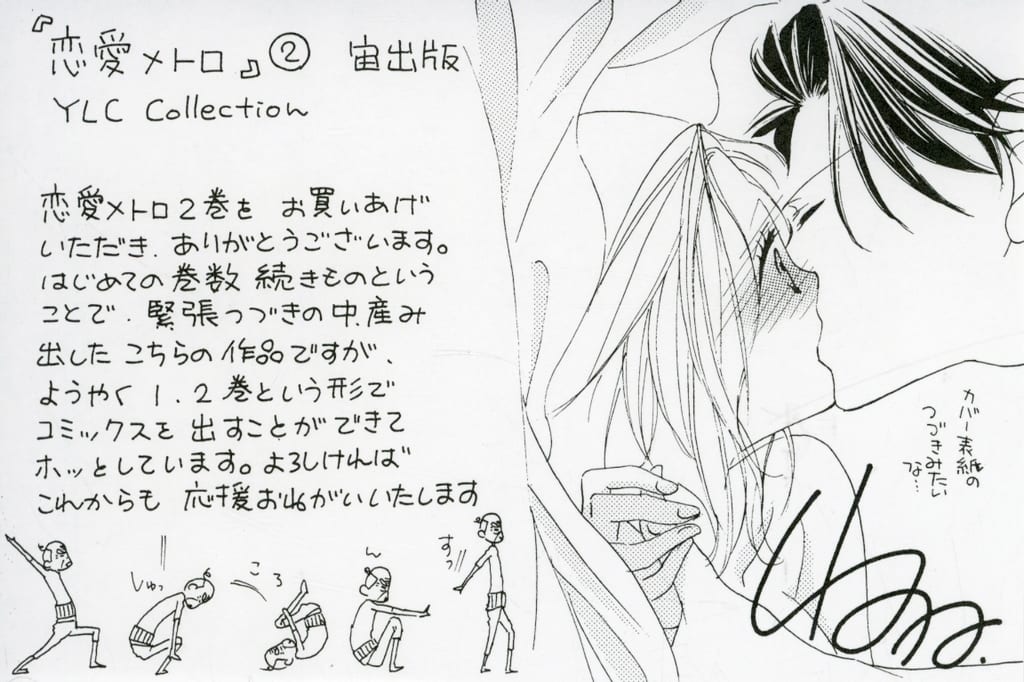 『恋愛メトロ』② 宙出版
YLC Collection
恋愛メトロ2巻を お買いあげ
いただき、ありがとうございます。
はじめての巻数 続きものという
ことで、緊張つづきの中、産み
出した こちらの作品ですが、
ようやく 1、2巻という形で
コミックスを 出すことができて
ホッとしています。よろしければ
これからも 応援おねがいいたします
しゅっ
ころ
ん
すっ
カバー表紙の
つづきみたい
な…